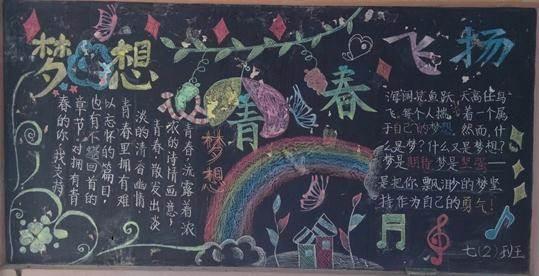 梦想
青春
飞扬
梦想
青春，流露着浓
浓的诗情画意；
青春，散发出淡
淡的清香幽情
青春里拥有难
以忘怀的篇目，
也有不堪回首的
章节。对拥有青
春的你，我支持
海阔凭鱼跃，天高任鸟
飞。每个人 着一个属
于自己的梦想。然而，什
么是梦？什么又是梦想？
梦是期待，梦是坚强——
是把你飘渺的梦坚
持作为自己的勇气！
七(2)班王